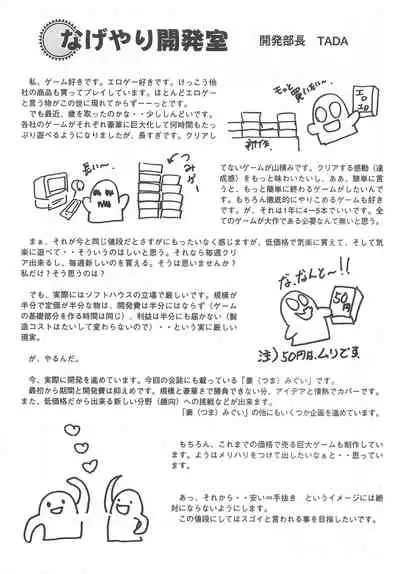 なげやり開発室
開発部長 TADA
私、ゲーム好きです。エロゲー好きです。けっこう他
社の商品も買ってプレイしています。ほとんどエロゲー
と言う物がこの世に現れてからずーーっとです。
でも最近、歳を取ったのかな・・少ししんどいです。
各社のゲームがそれぞれ豪華に巨大化して何時間もたっ
ぷり遊べるようになりましたが、長すぎです。クリアし
もっと買いたい〜
エロ
新作
長い〜
つみゲー
てないゲームが山積みです。クリアする感動（達
成感）をもっと味わいたいし、ああ、簡単に言
うと、もっと簡単に終わるゲームがしたいんで
す。もちろん徹底的にやりこめるゲームも好き
ですが、それは1年に4〜5本でいいです。全
てのゲームが大作である必要なんて無いと思う。
まぁ、それが今と同じ値段だとさすがにもったいなく感じますが、低価格で気楽に買えて、そして気
楽に遊べて・・そういうのほしいと思う。それなら毎週クリ
ア出来るし、毎週新しいのを買える。そうは思いませんか？
私だけ？そう思うのは？
な、なんと〜!!
50円
注）50円は、ムリです
でも、実際にはソフトハウスの立場で厳しいです。規模が
半分で定価が半分な物は、開発費は半分にはならず（ゲーム
の基礎部分を作る時間は同じ）、利益は半分にも届かない（製
造コストはたいして変わらないので）・・という実に厳しい
現実。
が、やるんだ。
今、実際に開発を進めています。今回の会誌にも載っている「妻（つま）みぐい」です。
最初から期間と開発費は抑えめです。規模と豪華さで勝負できない分、アイデアと情熱でカバーです。
また、低価格だから出来る新しい分野（趣向）への挑戦などが出来ます。
「妻（つま）みぐい」の他にもいくつか企画を進めています。
もちろん、これまでの価格で売る巨大ゲームも制作してい
ます。ようはメリハリをつけて出したいなぁと・・思ってい
ます。
あっ、それから・・安い＝手抜き というイメージには絶
対にならないようにします。
この値段にしてはスゴイと言われる事を目指したいです。